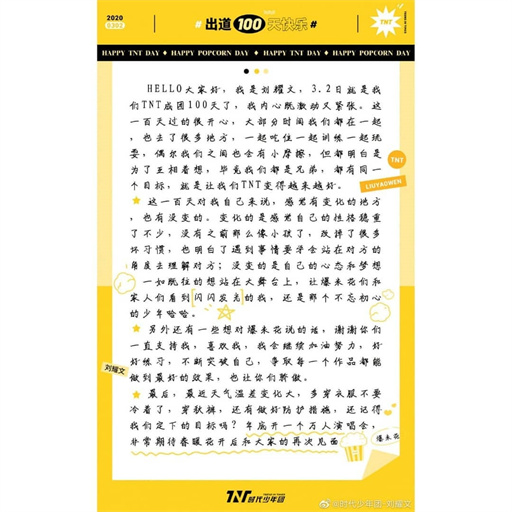 2020
0302
# 出道100天快乐 #
TNT
HAPPY TNT DAY ♦ HAPPY POPCORN DAY ♦ HAPPY TNT DAY ♦ HAPPY POPCORN DAY
HELLO大家好，我是刘耀文，3.2日就是我
们TNT成团100天了，我内心既激动又紧张。这
一百天过的很开心，大部分时间我们都在一起
，也去了很多地方，一起吃住一起训练一起玩
耍，偶尔我们之间也会有小摩擦，但都明白是
为了互相着想，毕竟我们都是兄弟，都有同一
个目标，就是让我们TNT变得越来越好。
TNT
LIUYAOWEN
★ 这一百天对我自己来说，感觉有变化的地方
，也有没变的。变化的是感觉自己的性格稳重
了不少，没有之前那么像小孩了，改掉了很多
坏习惯，也明白了遇到事情要学会站在对方的
角度去理解对方；没变的是自己的心态和梦想
，一如既往的想站在大舞台上，让爆米花们和
家人们看到[闪闪发光]的我，还是那个不忘初心
的少年哈哈。
★ 另外还有一些想对爆米花说的话，谢谢你们
一直支持我，喜欢我，我会继续加油努力，好
好练习，不断突破自己，争取每一个作品都能
做到最好的效果，也让你们骄傲。
刘耀文
★ 最后，最近天气温差变化大，多穿衣服不要
冷着了，穿秋裤，还有做好防护措施，还记得
我们定下的目标吗？年底开一个万人演唱会，
非常期待春暖花开后和大家的再次见面
爆米花
TNT时代少年团
@时代少年团-刘耀文